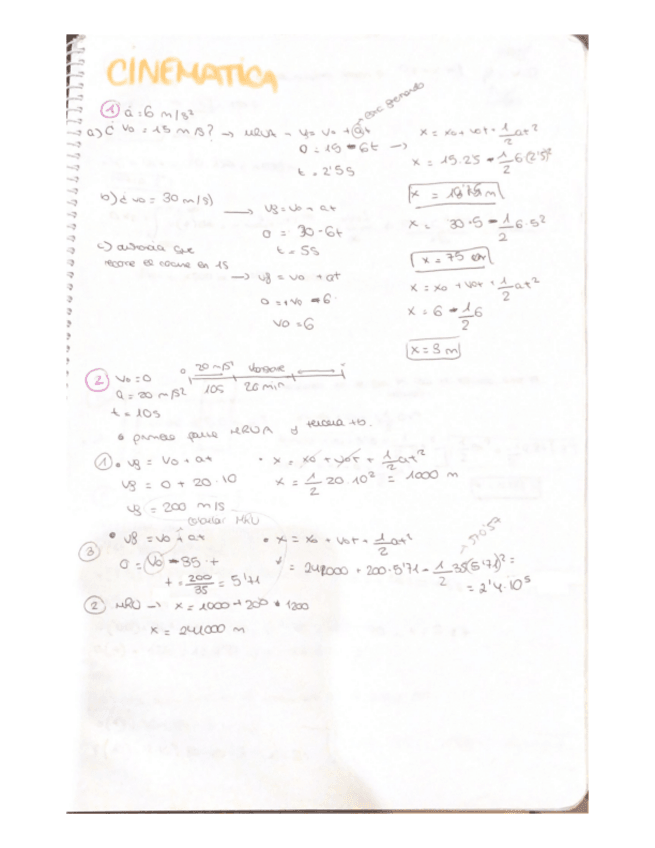 CINEMATICA
① a=6 m/s²
a) ¿ V₀ = 15 m/s? → MRUA - vf = V₀ + at
0 = 15 - 6t →
t = 2'5s
x = x₀ + v₀t + 1/2 at²
x = 15·2'5 - 1/2 6(2'5)²
b) ¿ v₀ = 30 m/s)
→ vf = v₀ + at
0 = 30-6t
t = 5s
x = 30·5 - 1/2 6·5²
x = 75 m
c) distancia que
recorre el coche en 1s
→ vf = v₀ + at
0 = +v₀ - 6
v₀ = 6
x = x₀ + v₀t + 1/2 at²
x = 6 - 1/2 6
x = 3 m
② V₀ = 0
a = 20 m/s²
t = 10s
0 20 m/s²
10s 20 min
• primero MRUA y tercera tb.
① • vf = V₀ + at
vf = 0 + 20·10
vf = 200 m/s
• x = x₀ + v₀t + 1/2 at²
x = 1/2 20·10² = 1000 m
calcular MRU
③ • vf = v₀ + at
0 = V₀ - 35·t
t = 200/35 = 5'71
• x = x₀ + v₀t + 1/2 at²
= 241000 + 200·5'71 - 1/2 35(5'71)² =
= 2'4·10⁵
② MRU → x = 1000 + 200 · 1200
x = 241000 m